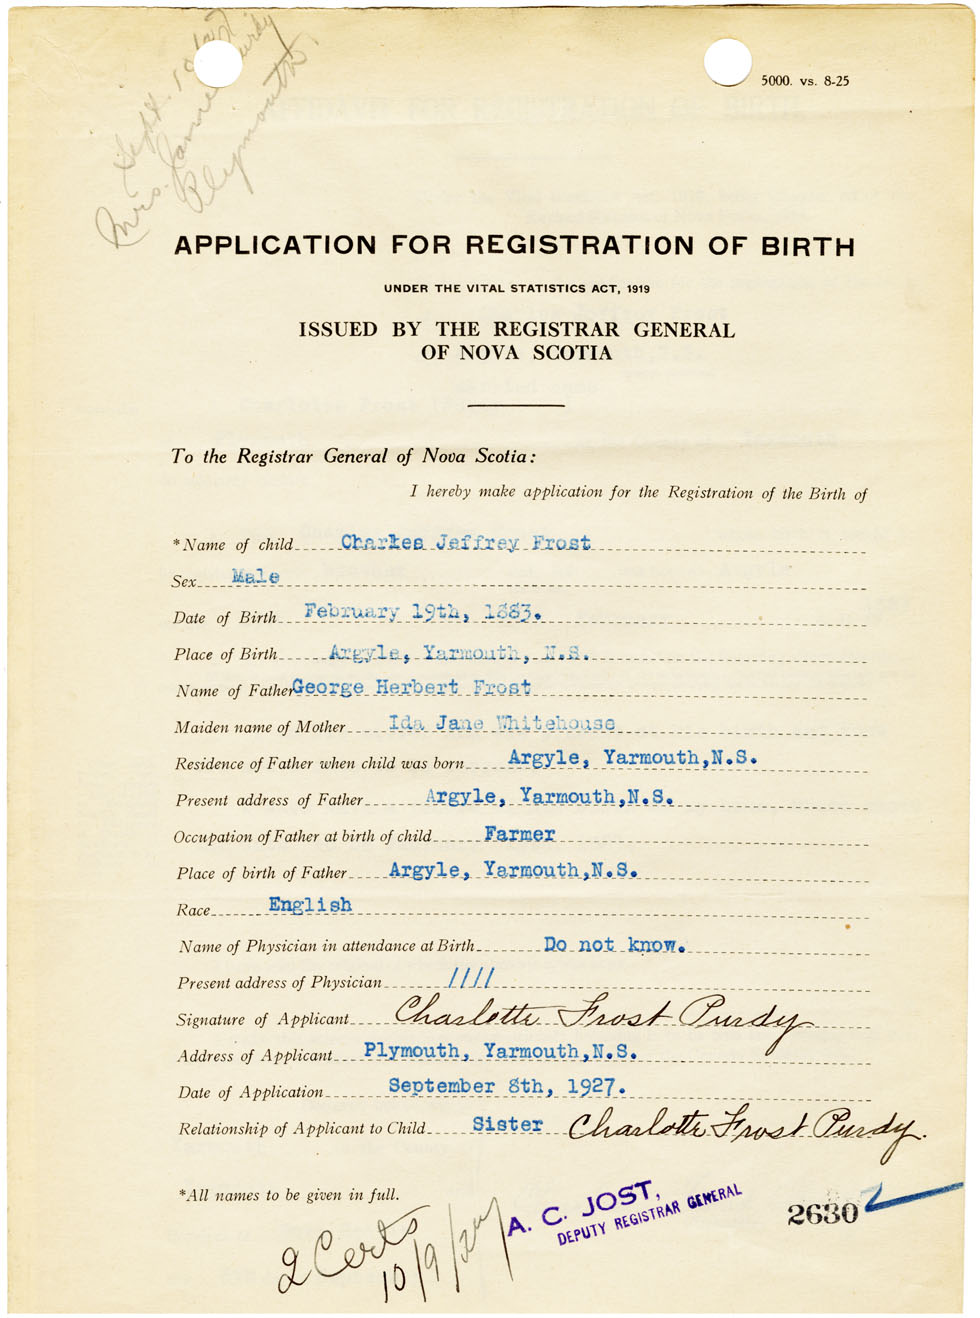 Sept. 10
Mrs.
Plymouth
5000. vs. 8-25
APPLICATION FOR REGISTRATION OF BIRTH
UNDER THE VITAL STATISTICS ACT, 1919
ISSUED BY THE REGISTRAR GENERAL
OF NOVA SCOTIA
To the Registrar General of Nova Scotia:
I hereby make application for the Registration of the Birth of
*Name of child Charles Jeffrey Frost
Sex Male
Date of Birth February 19th, 1883.
Place of Birth Argyle, Yarmouth, N.S.
Name of Father George Herbert Frost
Maiden name of Mother Ida Jane Whitehouse
Residence of Father when child was born Argyle, Yarmouth,N.S.
Present address of Father Argyle, Yarmouth,N.S.
Occupation of Father at birth of child Farmer
Place of birth of Father Argyle, Yarmouth,N.S.
Race English
Name of Physician in attendance at Birth Do not know.
Present address of Physician ////
Signature of Applicant Charlotte Frost Purdy
Address of Applicant Plymouth, Yarmouth,N.S.
Date of Application September 8th, 1927.
Relationship of Applicant to Child Sister Charlotte Frost Purdy.
*All names to be given in full.
A. C. JOST,
DEPUTY REGISTRAR GENERAL
2630
2 Certs
10/9/27